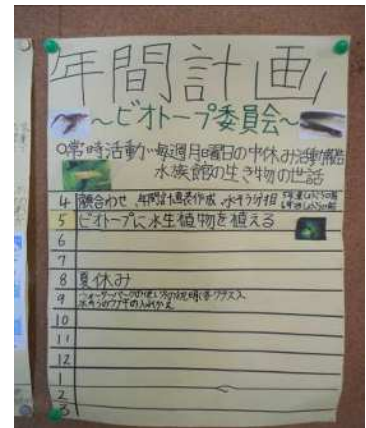 年間計画
～ビオトープ委員会～
○常時活動…毎週月曜日の中休み活動報告
水族館の生き物の世話
4 顔合わせ、年間計画表作成、水そう分担
5 ビオトープに水生植物を植える
6
7
8 夏休み
9
水そうのウナギの入れかえ
10
11
12
1
2
3